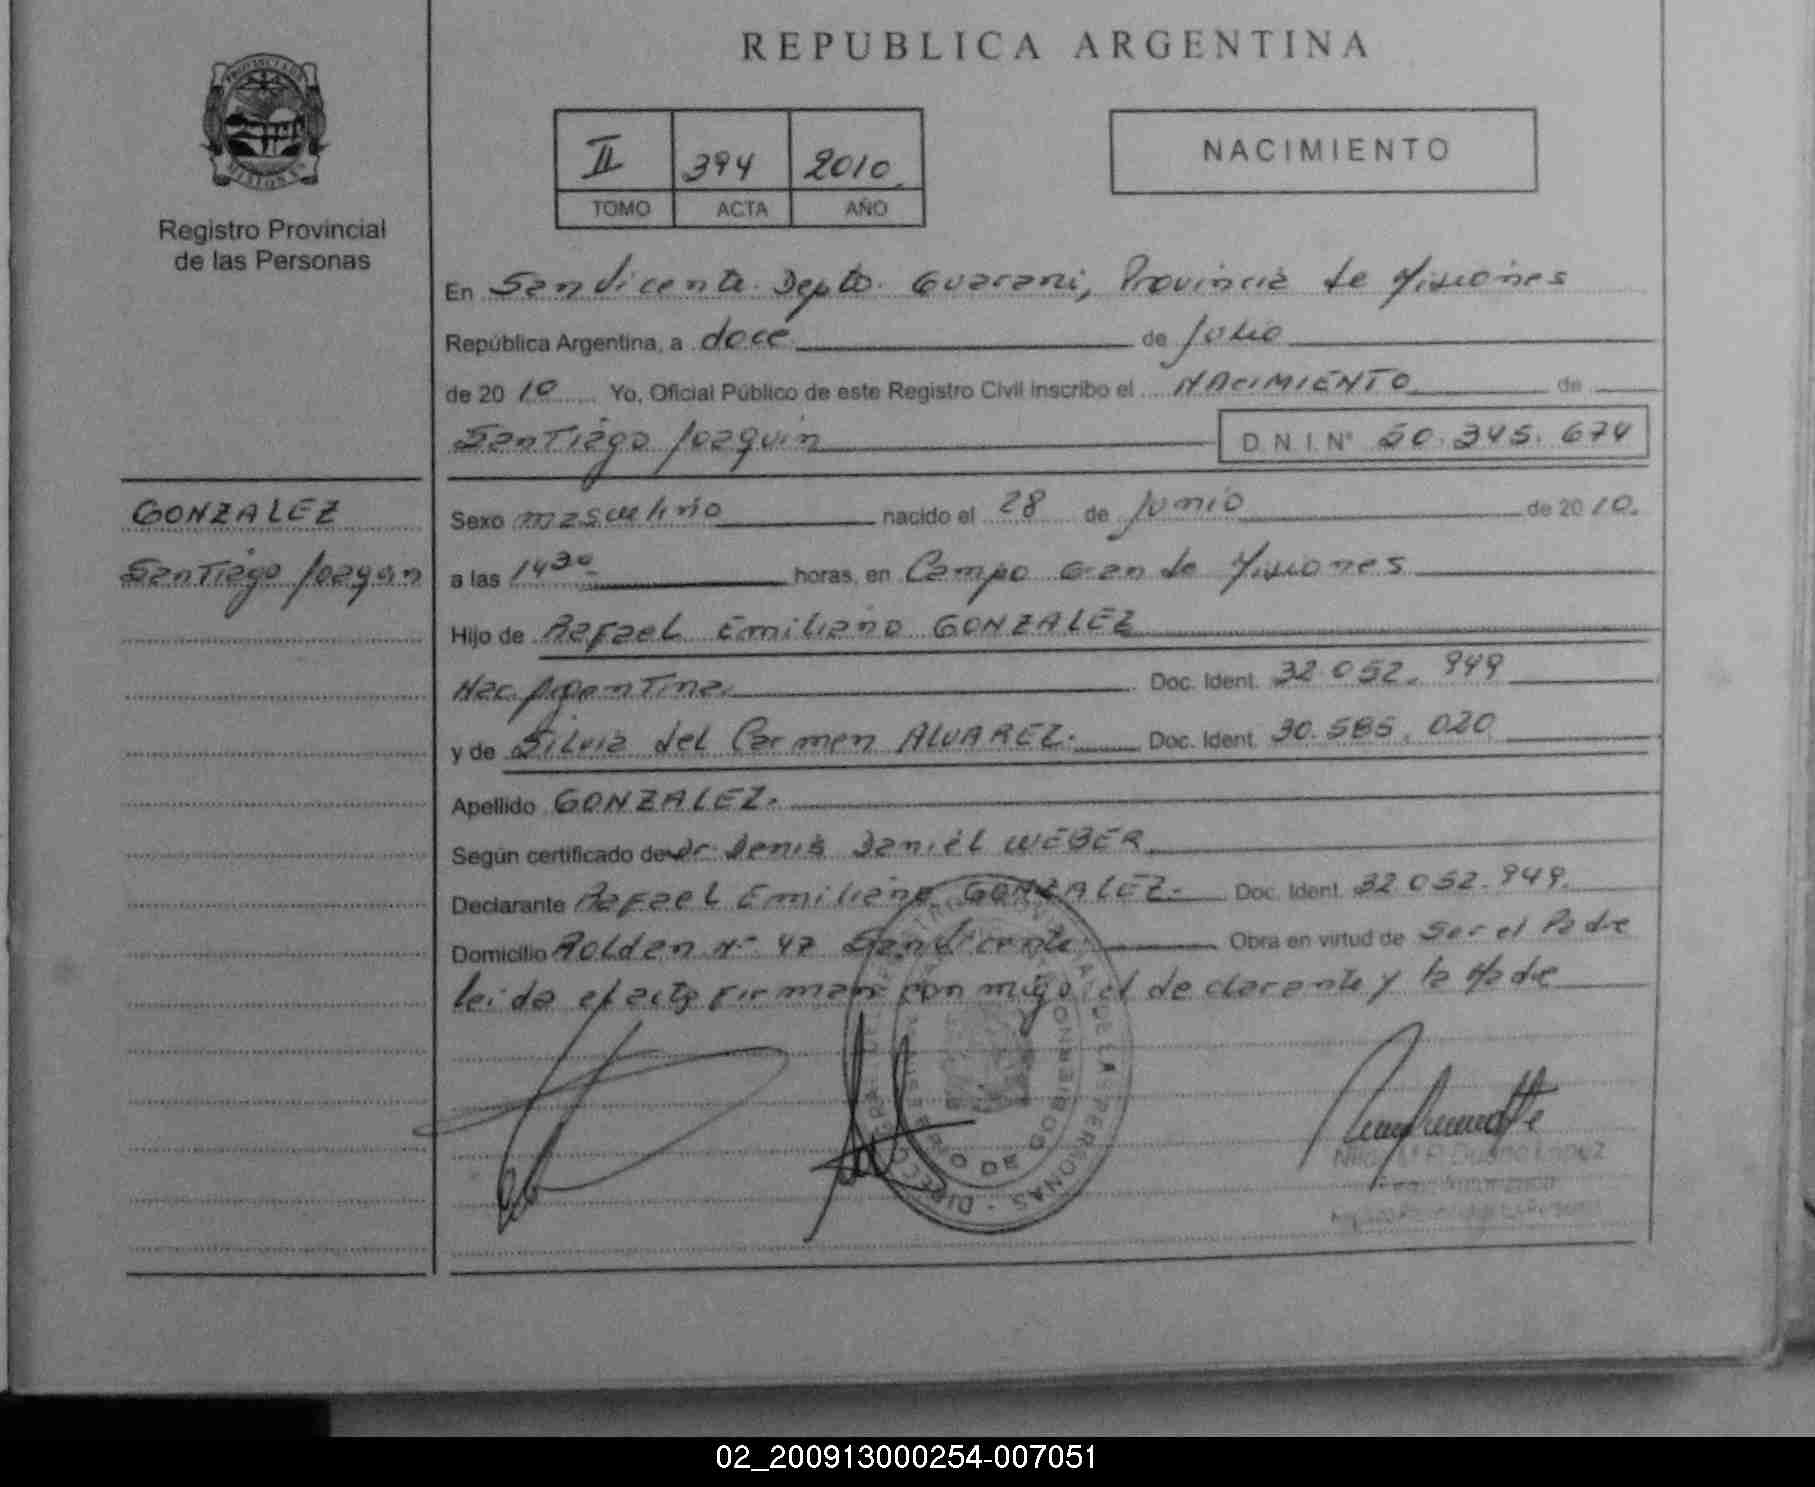 REPUBLICA ARGENTINA
II 394 2010
TOMO ACTA AÑO
NACIMIENTO
Registro Provincial
de las Personas
En San Vicente Depto. Guarani, Provincia de Misiones
República Argentina, a doce de Julio
de 2010 Yo, Oficial Público de este Registro Civil inscribo el NACIMIENTO de
Santiago Joaquin D.N.I. N° 50.345.674
GONZALEZ
Santiago Joaquin
Sexo masculino nacido el 28 de Junio de 2010.
a las 14 30 horas, en Campo Grande Misiones
Hijo de Rafael Emiliano GONZALEZ
Nac. Argentina. Doc. Ident. 32.052.949
y de Silvia del Carmen ALVAREZ. Doc. Ident. 30.585.020
Apellido GONZALEZ.
Según certificado de Dr. Denis Daniel WEBER
Declarante Rafael Emiliano GONZALEZ. Doc. Ident. 32.052.949.
Domicilio Roldan N° 47 San Vicente. Obra en virtud de Ser el Padre
leida el acta firman con migo el declarante y la Madre
02_200913000254-007051